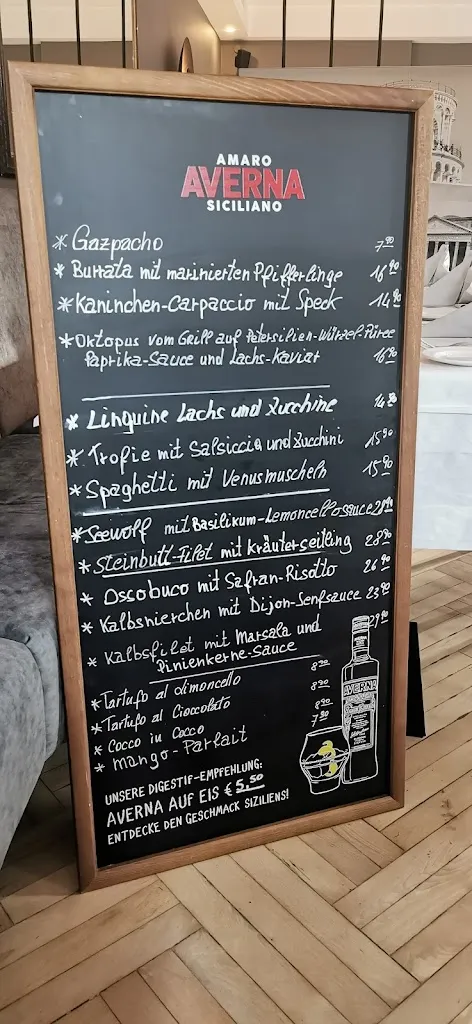 AMARO
AVERNA
SICILIANO
* Gazpacho 7,90
* Burrata mit marinierten Pfifferlinge 16,90
* Kaninchen-Carpaccio mit Speck 14,90
* Oktopus vom Grill auf Petersilien-Würzel-Püree
Paprika-Sauce und Lachs-Kaviar 16,90
* Linguine Lachs und Zucchine 14,90
* Trofie mit Salsiccia und Zucchini 15,90
* Spaghetti mit Venusmuscheln 15,90
* Seewolf mit Basilikum-Lemoncellosauce 28,90
* Steinbutt-Filet mit Kräuterseitling 28,90
* Ossobuco mit Safran-Risotto 26,90
* Kalbsnierchen mit Dijon-Senfsauce 23,90
* Kalbsfilet mit Marsala und 29,90
Pinienkerne-Sauce
* Tartufo al limoncello 8,90
* Tartufo al Cioccolato 8,90
* Cocco in Cocco 8,90
* Mango-Parfait 7,90
UNSERE DIGESTIF-EMPFEHLUNG:
AVERNA AUF EIS € 5,50
ENTDECKE DEN GESCHMACK SIZILIENS!
AVERNA